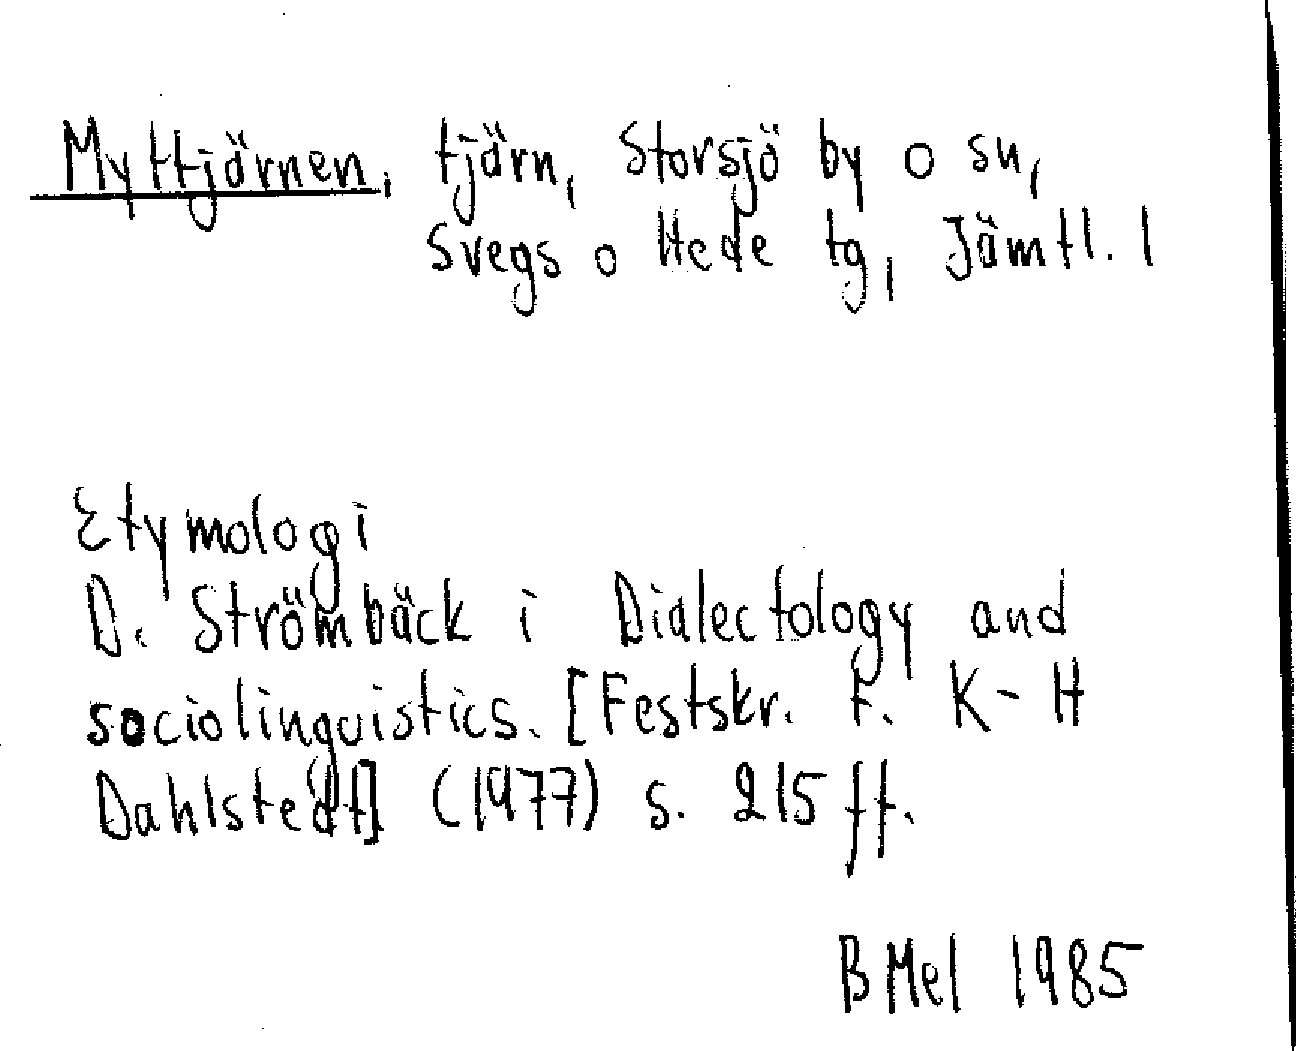 Myttjärnen, tjärn, Storsjö by o sn,
Svegs o Hede tg, Jämtl. l
Etymologi
D. Strömbäck i Dialectology and
sociolinguistics. [Festskr. t. K-H
Dahlstedt] (1977) s. 215 ff.
B Mel 1985